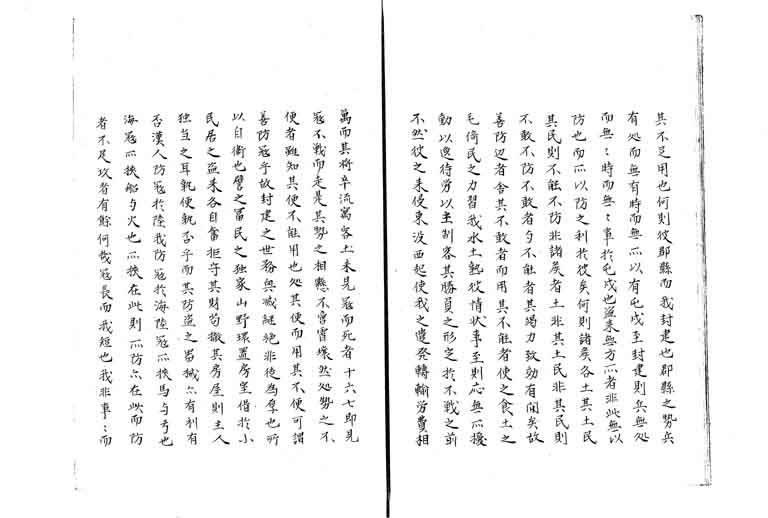 其不足用也何則彼郡縣而我封建也郡縣之勢兵
有処而無有時而無所以有屯戍至封建則兵無処
而無〻時而無〻事於屯戍也盗来無方所者非此無以
防也而所以防之利於彼矣何則諸矦各土其土民
其民則不能不防非諸矦者土非其土民非其民則
不敢不防不敢者与不能者其竭力致効有間矣故
善防辺者舍其不敢者而用其不能者使之食土之
毛倚民之力習我水土熟彼情状事至則応無所擾
動以逸待労以主制客其勝負之形定於不戦之前
不然彼之来侵東没西起使我之遣発轉輸労費相
萬而其将卒流寓客土未見冦而死者十六七即見
冦不戦而走是其勢之相懸不啻霄壌然処勢之不
便者雖知其便不能用也処其便而用其不便可謂
善防冦乎故封建之世務興滅継絶非徒為厚也所
以自衛也譬之冨民之独家山野環置房室借於小
民居之盗来各自奮拒守其財苟撤其房屋則主人
独当之耳孰便孰否乎而其防盗之器械亦有利有
否漢人防冦於陸我防冦於海陸冦所挾馬与弓也
海冦所挾船与火也所挾在此則所防亦在此而防
者不足攻者有餘何哉冦長而我短也我非事〻而